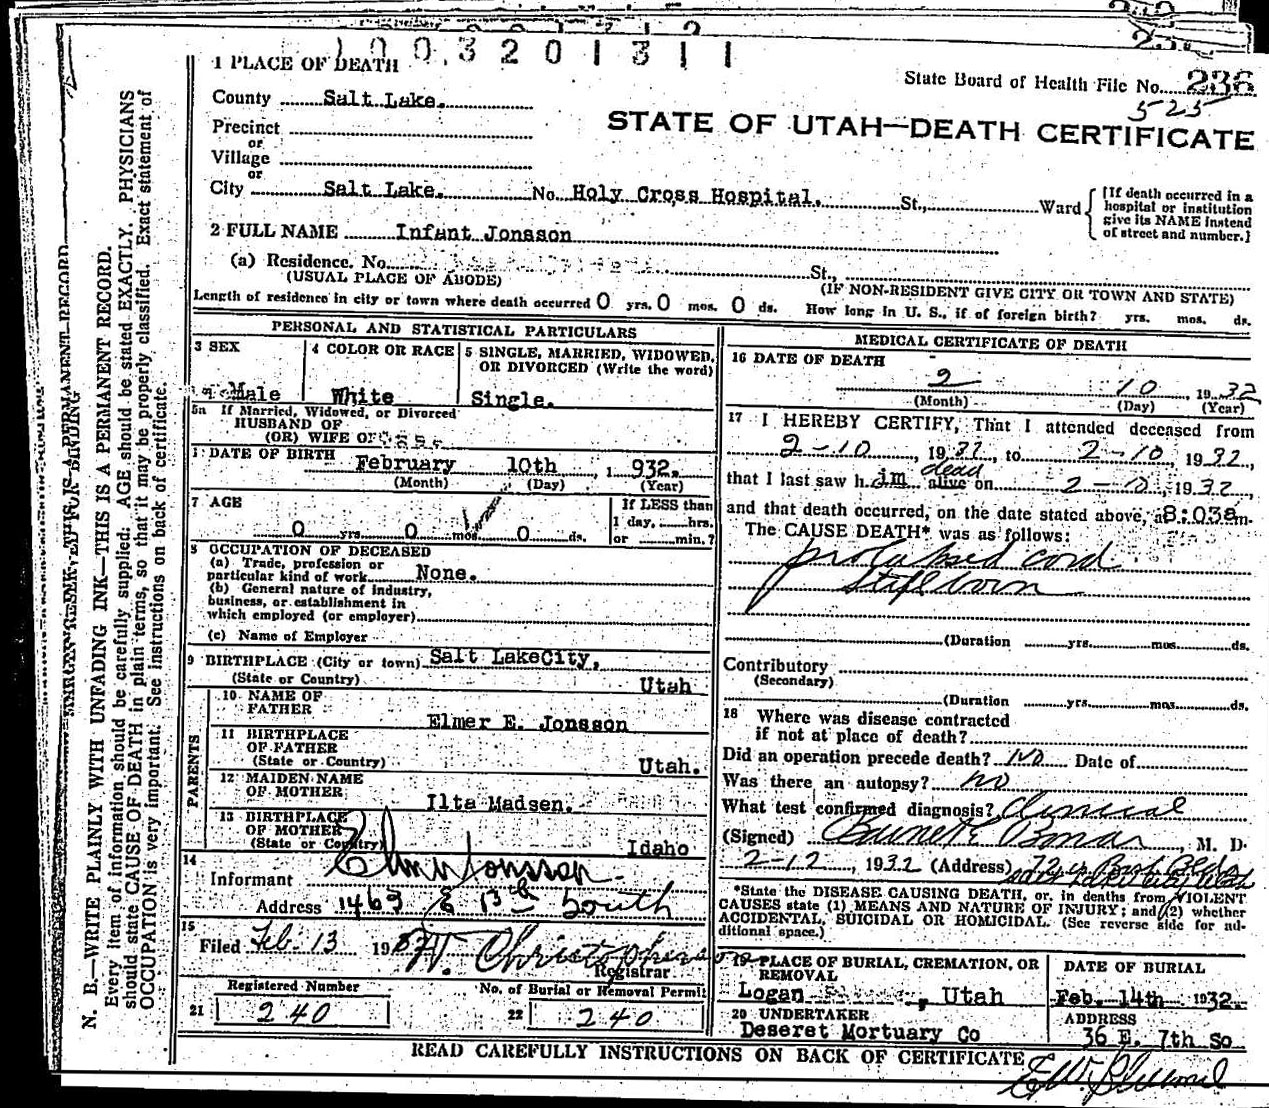 1003201311
1 PLACE OF DEATH
State Board of Health File No. 236
525
County Salt Lake.
STATE OF UTAH—DEATH CERTIFICATE
Precinct
or
Village
or
City Salt Lake. No. Holy Cross Hospital. St., Ward
[If death occurred in a
hospital or institution
give its NAME instead
of street and number.]
2 FULL NAME Infant Jonsson
(a) Residence. No. St.,
(USUAL PLACE OF ABODE) (IF NON-RESIDENT GIVE CITY OR TOWN AND STATE)
Length of residence in city or town where death occurred 0 yrs. 0 mos. 0 ds. How long in U. S., if of foreign birth? yrs. mos. ds.
PERSONAL AND STATISTICAL PARTICULARS
3 SEX
Male
4 COLOR OR RACE
White
5 SINGLE, MARRIED, WIDOWED,
OR DIVORCED (Write the word)
Single.
5a If Married, Widowed, or Divorced
HUSBAND OF
(OR) WIFE OF
DATE OF BIRTH
February 10th, 1932.
(Month) (Day) (Year)
7 AGE
0 yrs. 0 mos. 0 ds.
If LESS than
1 day, hrs.
or min.?
8 OCCUPATION OF DECEASED
(a) Trade, profession or
particular kind of work None.
(b) General nature of industry,
business, or establishment in
which employed (or employer)
(c) Name of Employer
9 BIRTHPLACE (City or town) Salt LakeCity,
(State or Country) Utah
PARENTS
10 NAME OF
FATHER
Elmer E. Jonsson
11 BIRTHPLACE
OF FATHER
(State or Country) Utah.
12 MAIDEN NAME
OF MOTHER
Ilta Madsen.
13 BIRTHPLACE
OF MOTHER
(State or Country) Idaho
14
Informant Elmer Jonsson
Address 1463 E 13th South
15
Filed Feb. 13 193 Christopherson
Registrar
Registered Number
21 240
No. of Burial or Removal Permit
22 240
MEDICAL CERTIFICATE OF DEATH
16 DATE OF DEATH
2 10 1932
(Month) (Day) (Year)
17 I HEREBY CERTIFY, That I attended deceased from
2-10, 1932, to 2-10, 1932,
dead
that I last saw h im alive on 2-10, 1932,
and that death occurred, on the date stated above, at 8:03a m.
The CAUSE DEATH* was as follows:
prolapsed cord
Stillborn
(Duration yrs. mos. ds.
Contributory
(Secondary)
(Duration yrs. mos. ds.
18 Where was disease contracted
if not at place of death?
Did an operation precede death? No Date of
Was there an autopsy? no
What test confirmed diagnosis? Clinical
(Signed) , M. D.
2-12, 1932 (Address)
*State the DISEASE CAUSING DEATH, or, in deaths from VIOLENT
CAUSES state (1) MEANS AND NATURE OF INJURY; and (2) whether
ACCIDENTAL, SUICIDAL OR HOMICIDAL. (See reverse side for ad-
ditional space.)
19 PLACE OF BURIAL, CREMATION, OR
REMOVAL
Logan, Utah
DATE OF BURIAL
Feb. 14th 1932.
20 UNDERTAKER
Deseret Mortuary Co
ADDRESS
36 E. 7th So
READ CAREFULLY INSTRUCTIONS ON BACK OF CERTIFICATE
N. B.—WRITE PLAINLY WITH UNFADING INK—THIS IS A PERMANENT RECORD.
Every item of information should be carefully supplied. AGE should be stated EXACTLY. PHYSICIANS
should state CAUSE OF DEATH in plain terms, so that it may be properly classified. Exact statement of
OCCUPATION is very important. See instructions on back of certificate.